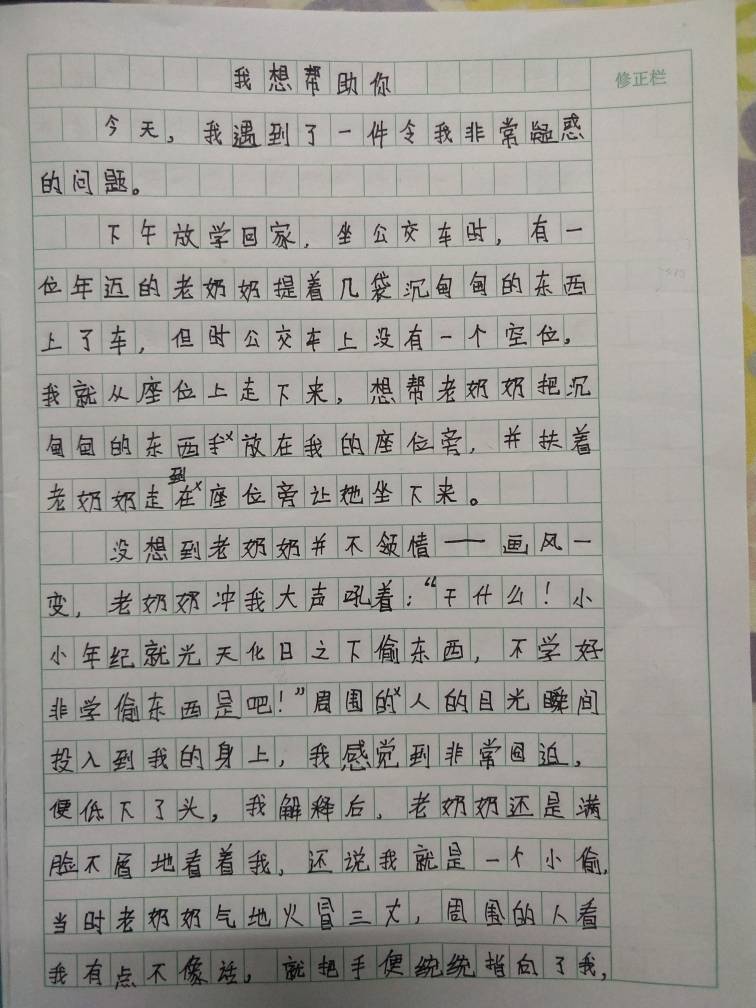 我想帮助你
修正栏
今天，我遇到了一件令我非常疑惑
的问题。
下午放学回家，坐公交车时，有一
位年迈的老奶奶提着几袋沉甸甸的东西
上了车，但时公交车上没有一个空位。
我就从座位上走下来，想帮老奶奶把沉
甸甸的东西放在我的座位旁，并扶着
老奶奶走到座位旁让她坐下来。
没想到老奶奶并不领情——画风一
变，老奶奶冲我大声吼着：“干什么！小
小年纪就光天化日之下偷东西，不学好
非学偷东西是吧！”周围的人的目光瞬间
投入到我的身上，我感觉到非常窘迫，
便低下了头，我解释后，老奶奶还是满
脸不屑地看着我，还说我就是一个小偷，
当时老奶奶气地火冒三丈，周围的人看
我有点不像话，就把手便统统指向了我，